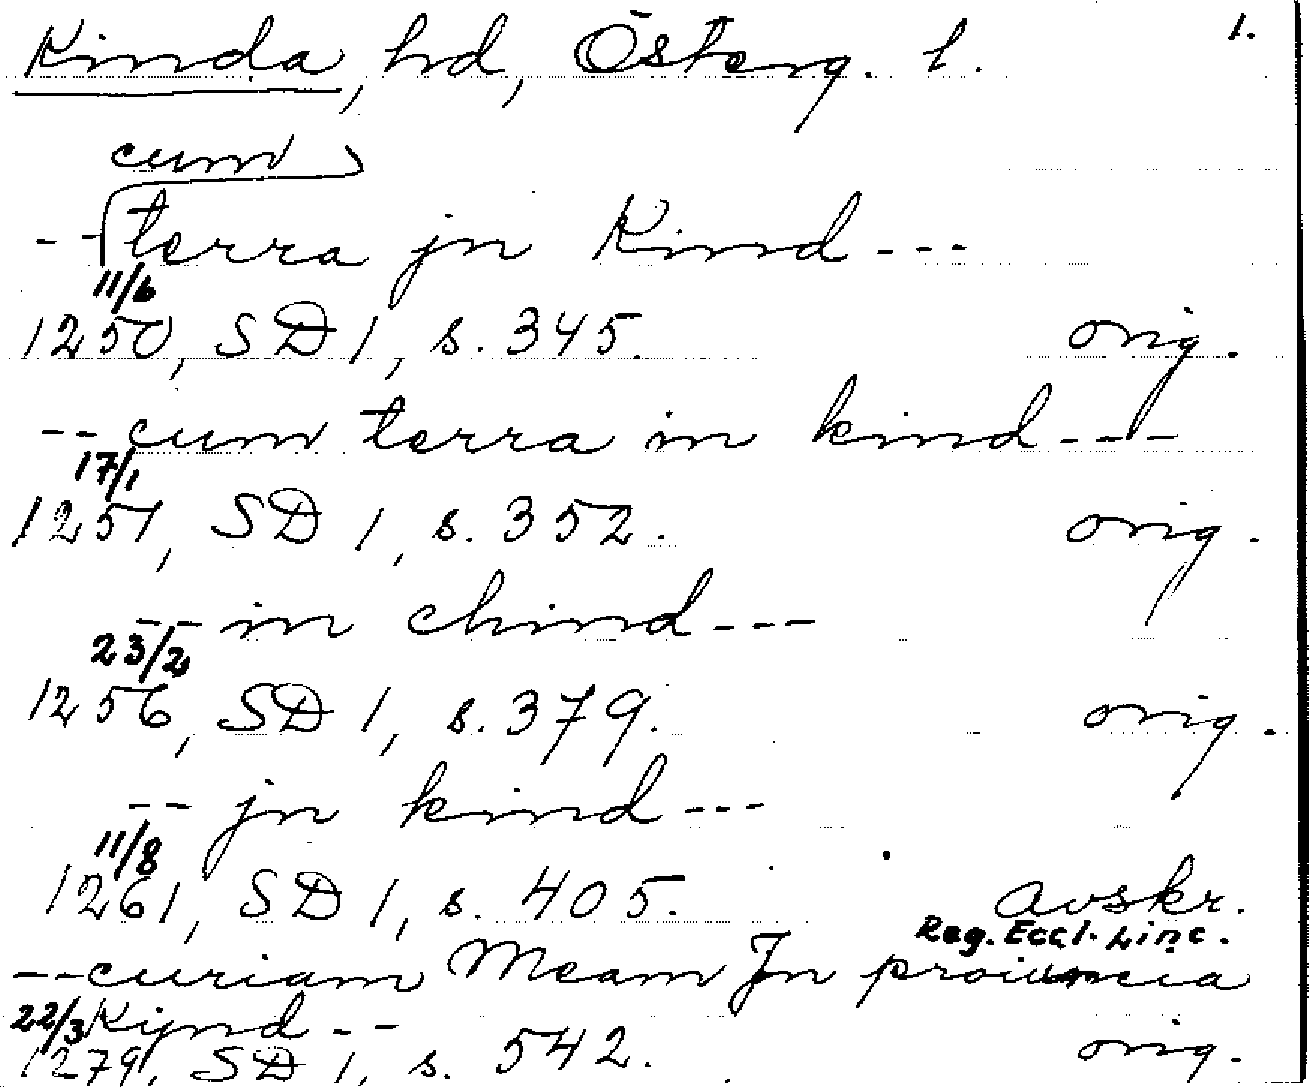 Kinda, hd, Österg. l. 1.
cum
-- terra jn Kind ---
11/6
1250, SD 1, s. 345. orig.
-- cum terra in kind ---
17/1
1251, SD 1, s. 352. orig.
-- in chind ---
23/2
1256, SD 1, s. 379. orig.
-- jn kind ---
11/8
1261, SD 1, s. 405. avskr.
Reg. Eccl. Linc.
-- curiam Meam Jn prouincia
22/3 Kynd --
1279, SD 1, s. 542. orig.